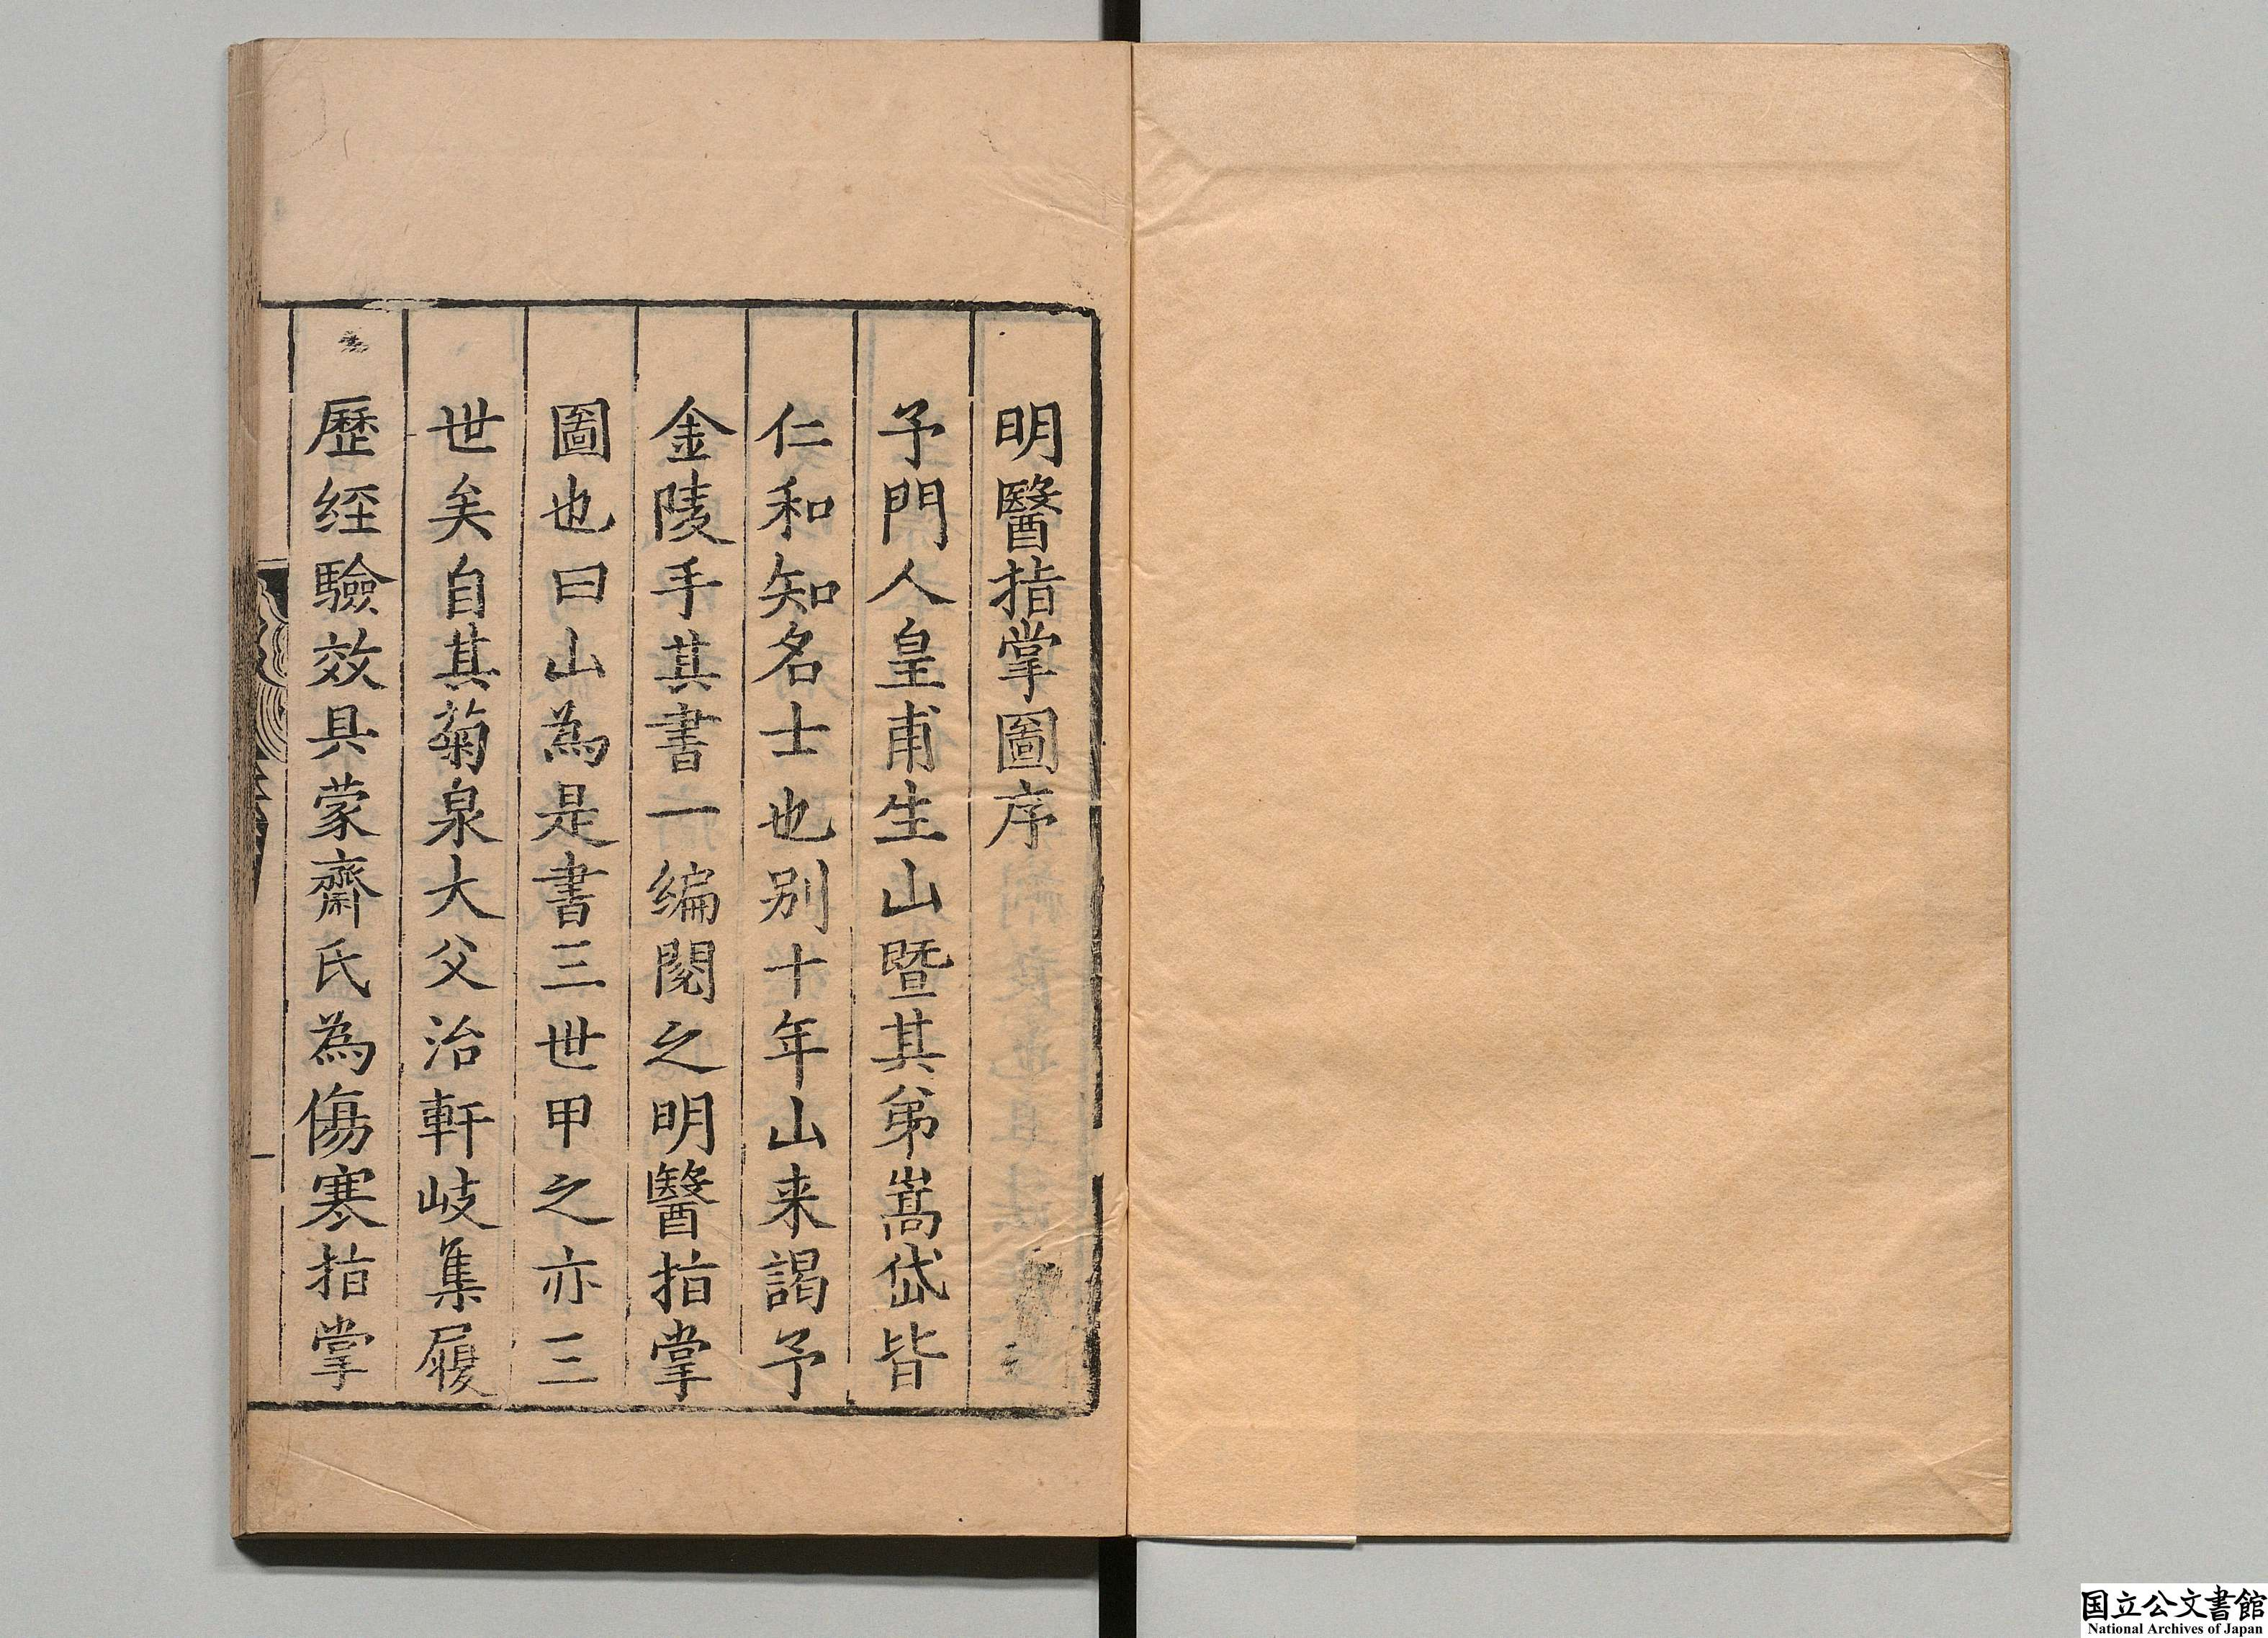 明醫指掌圖序
予門人皇甫生山暨其弟嵩岱皆
仁和知名士也别十年山来謁予
金陵手其書一编閱之明醫指掌
圖也曰山為是書三世甲之亦三
世矣自其菊泉大父治軒岐集履
歷经驗效具蒙齋氏為傷寒指掌
国立公文書館
National Archives of Japan